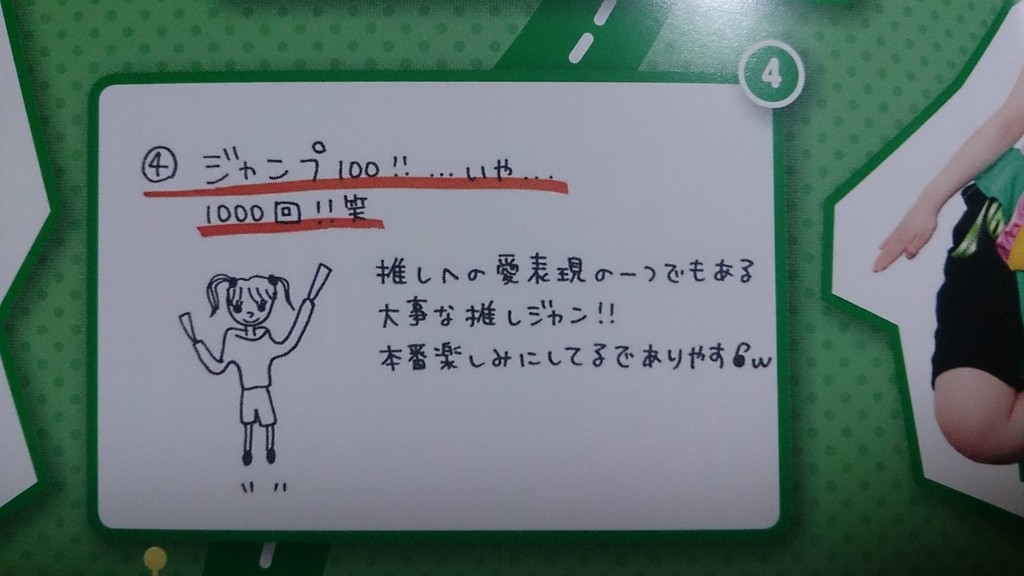 4
④ ジャンプ100!! …いや…
1000回!!笑
推しへの愛表現の一つでもある
大事な推しジャン!!
本番楽しみにしてるでありやすw